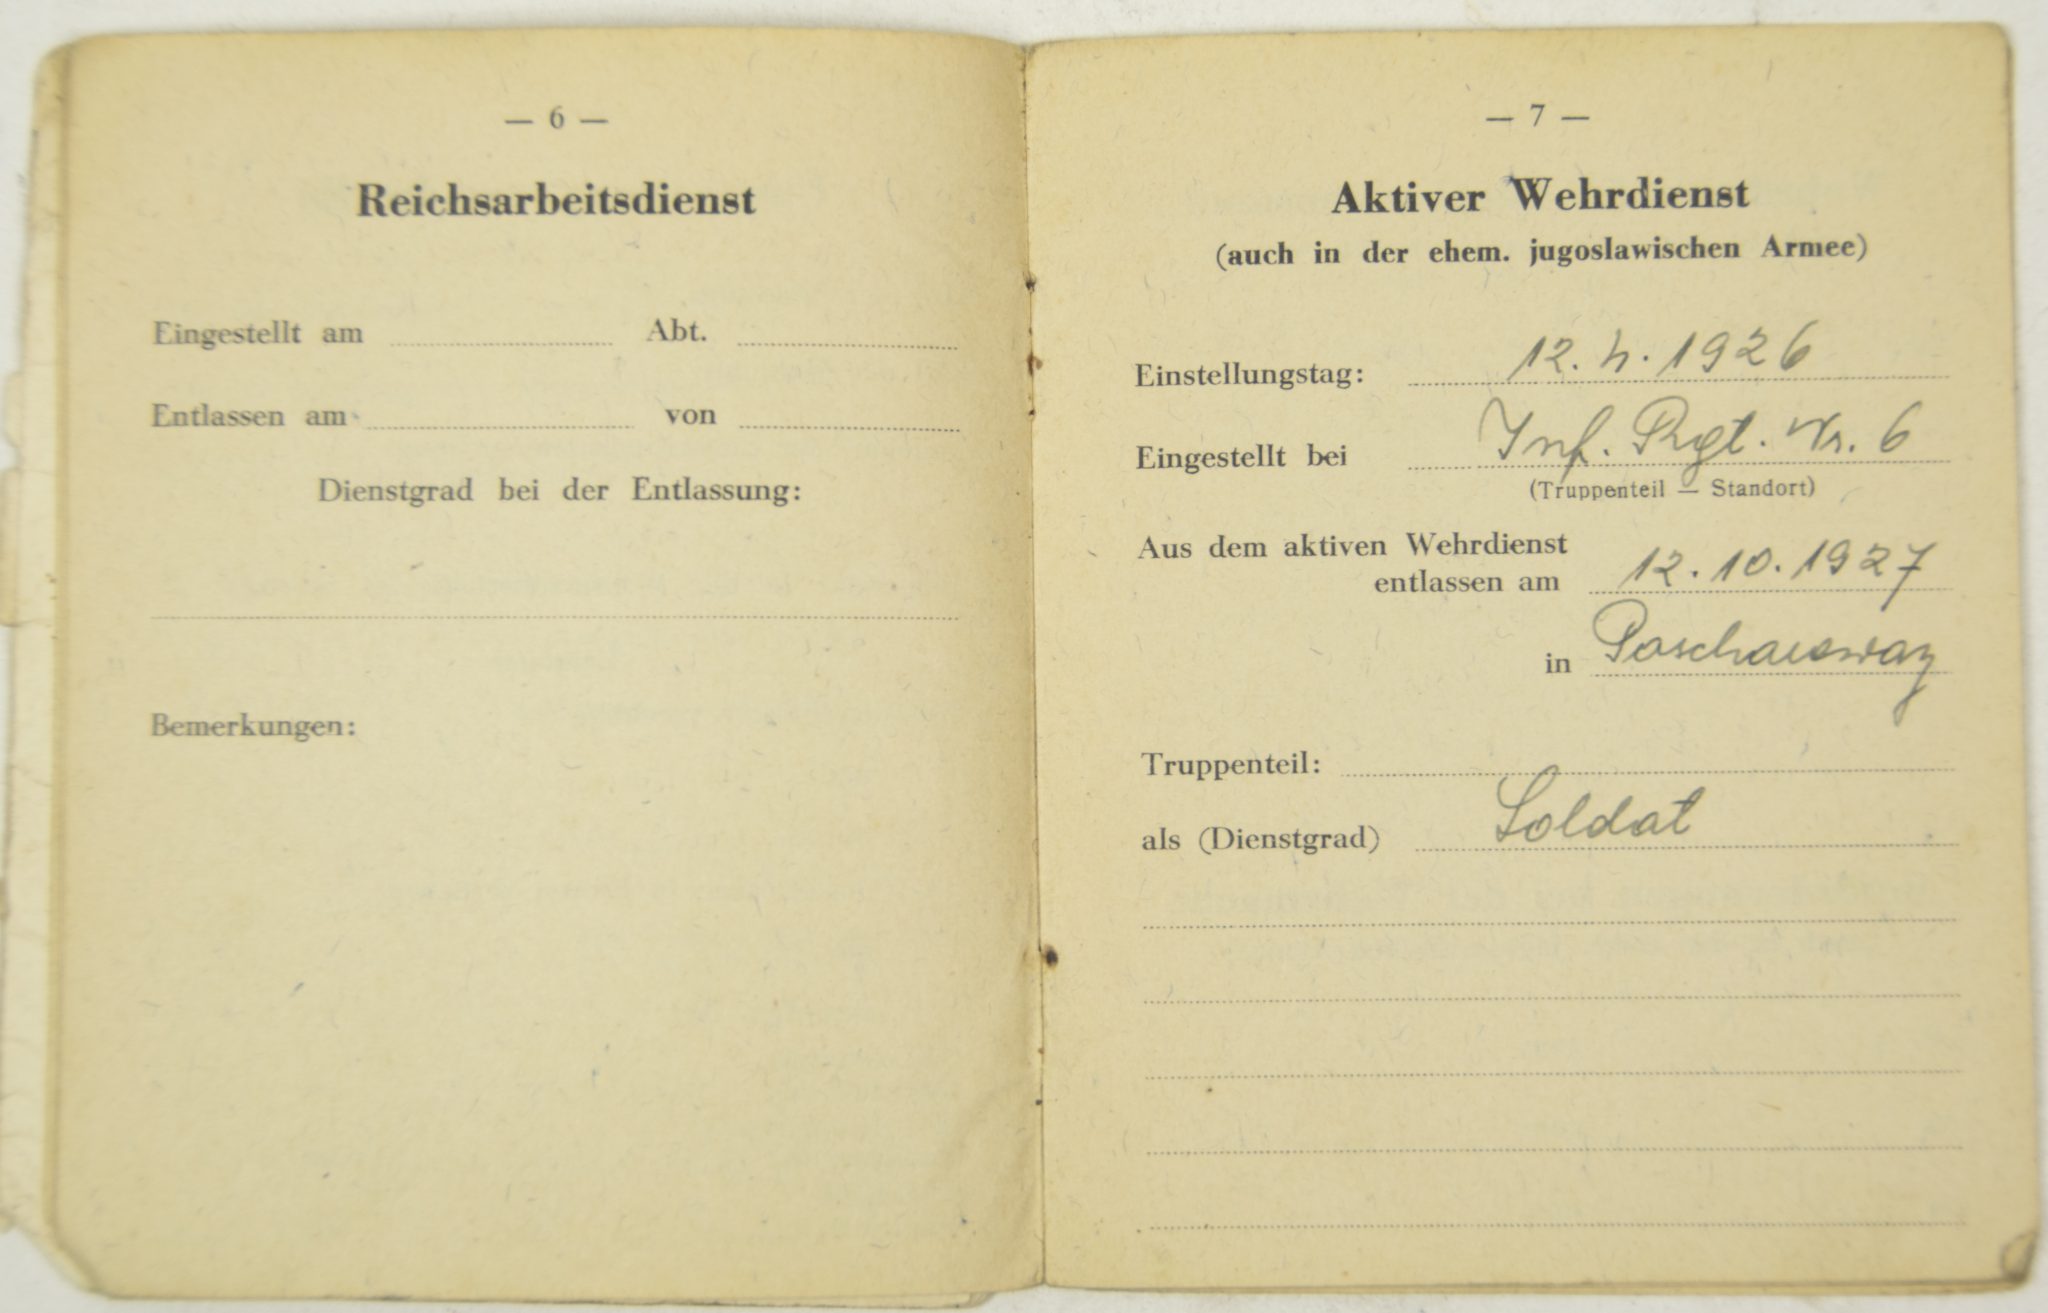 — 6 —
Reichsarbeitsdienst
Eingestellt am Abt.
Entlassen am von
Dienstgrad bei der Entlassung:
Bemerkungen:
— 7 —
Aktiver Wehrdienst
(auch in der ehem. jugoslawischen Armee)
Einstellungstag: 12. 4. 1926
Eingestellt bei Inf. Rgt. Nr. 6
(Truppenteil — Standort)
Aus dem aktiven Wehrdienst
entlassen am 12. 10. 1927
in
Truppenteil:
als (Dienstgrad) Soldat